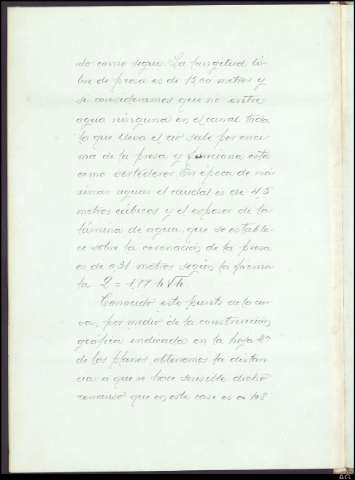 do como sigue. La longitud li-
bre de presa es de 15,00 metros y
si consideramos que no entra
agua ninguna en el canal toda
la que lleva el rio sale por enci-
ma de la presa y funciona esta
como vertedero. En época de má-
ximas aguas el caudal es de 4,5
metros cúbicos y el espesor de la
lámina de agua que se estable-
ce sobre la coronación de la presa
es de 0,31 metros según la formu-
la Q = 1,77 h√h.
Conocido este punto de la cur-
va, por medio de la construcción
gráfica indicada en la hoja 2ª
de los planos obtenemos la distan-
cia a que se hace sensible dicho
remanso que en este caso es a 108